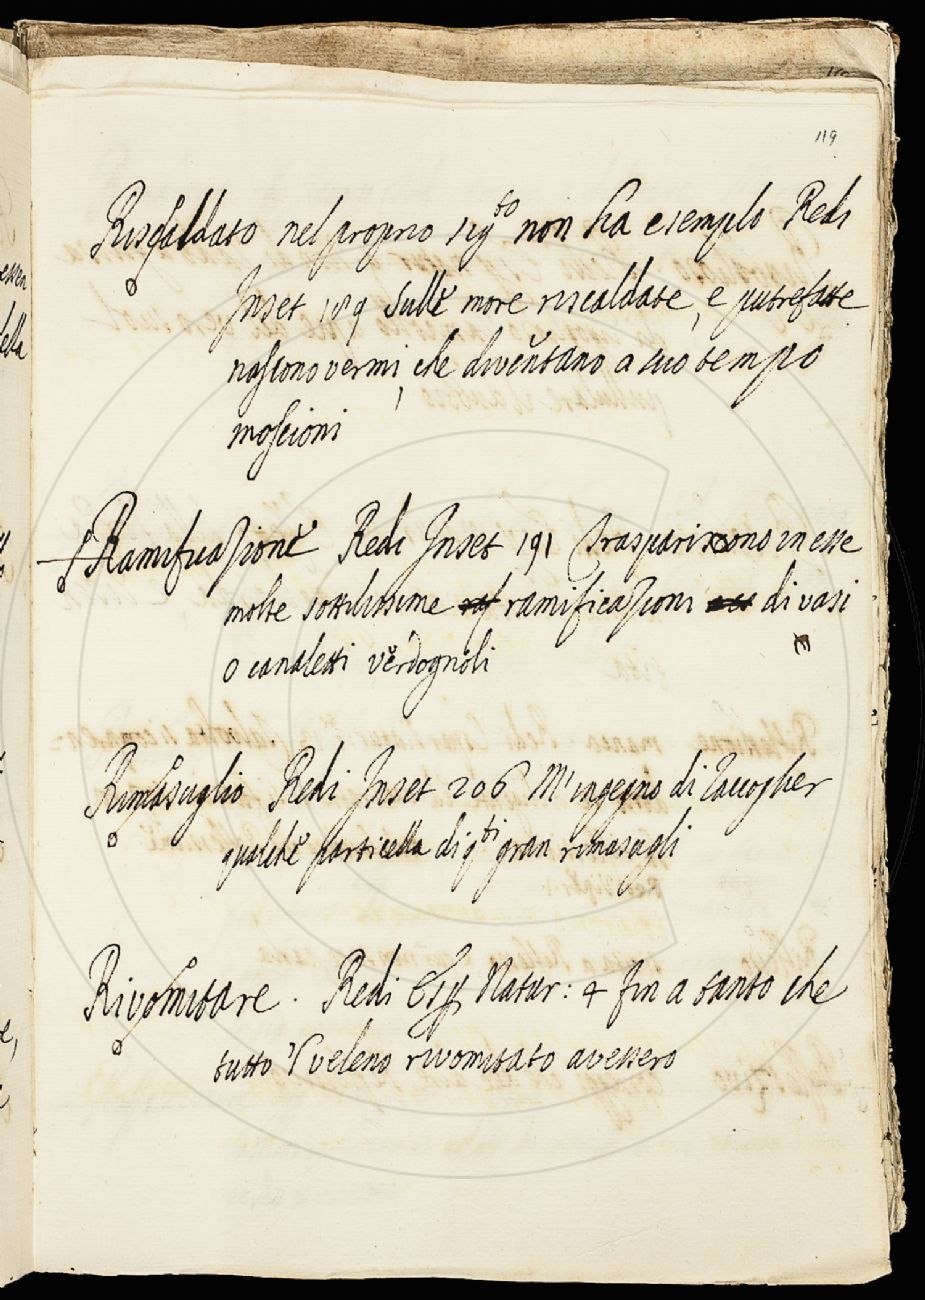 119
Riscaldato nel proprio sig.to non ha esempio Redi
Inset 189 Sulle more riscaldate, e putrefatte
nascono vermi, che diventano a suo tempo
moscioni
Ramificazione Redi Inset 191 Traspariscono in esse
molte sottilissime ramificazioni di vasi
o canaletti verdognoli
Rimasuglio Redi Inset 206 M'ingegno di raccoglier
qualche particella di q.ti gran rimasugli
Rivomitare. Redi Esp. Natur: 4 fin a tanto che
tutto 'l veleno rivomitato avessero